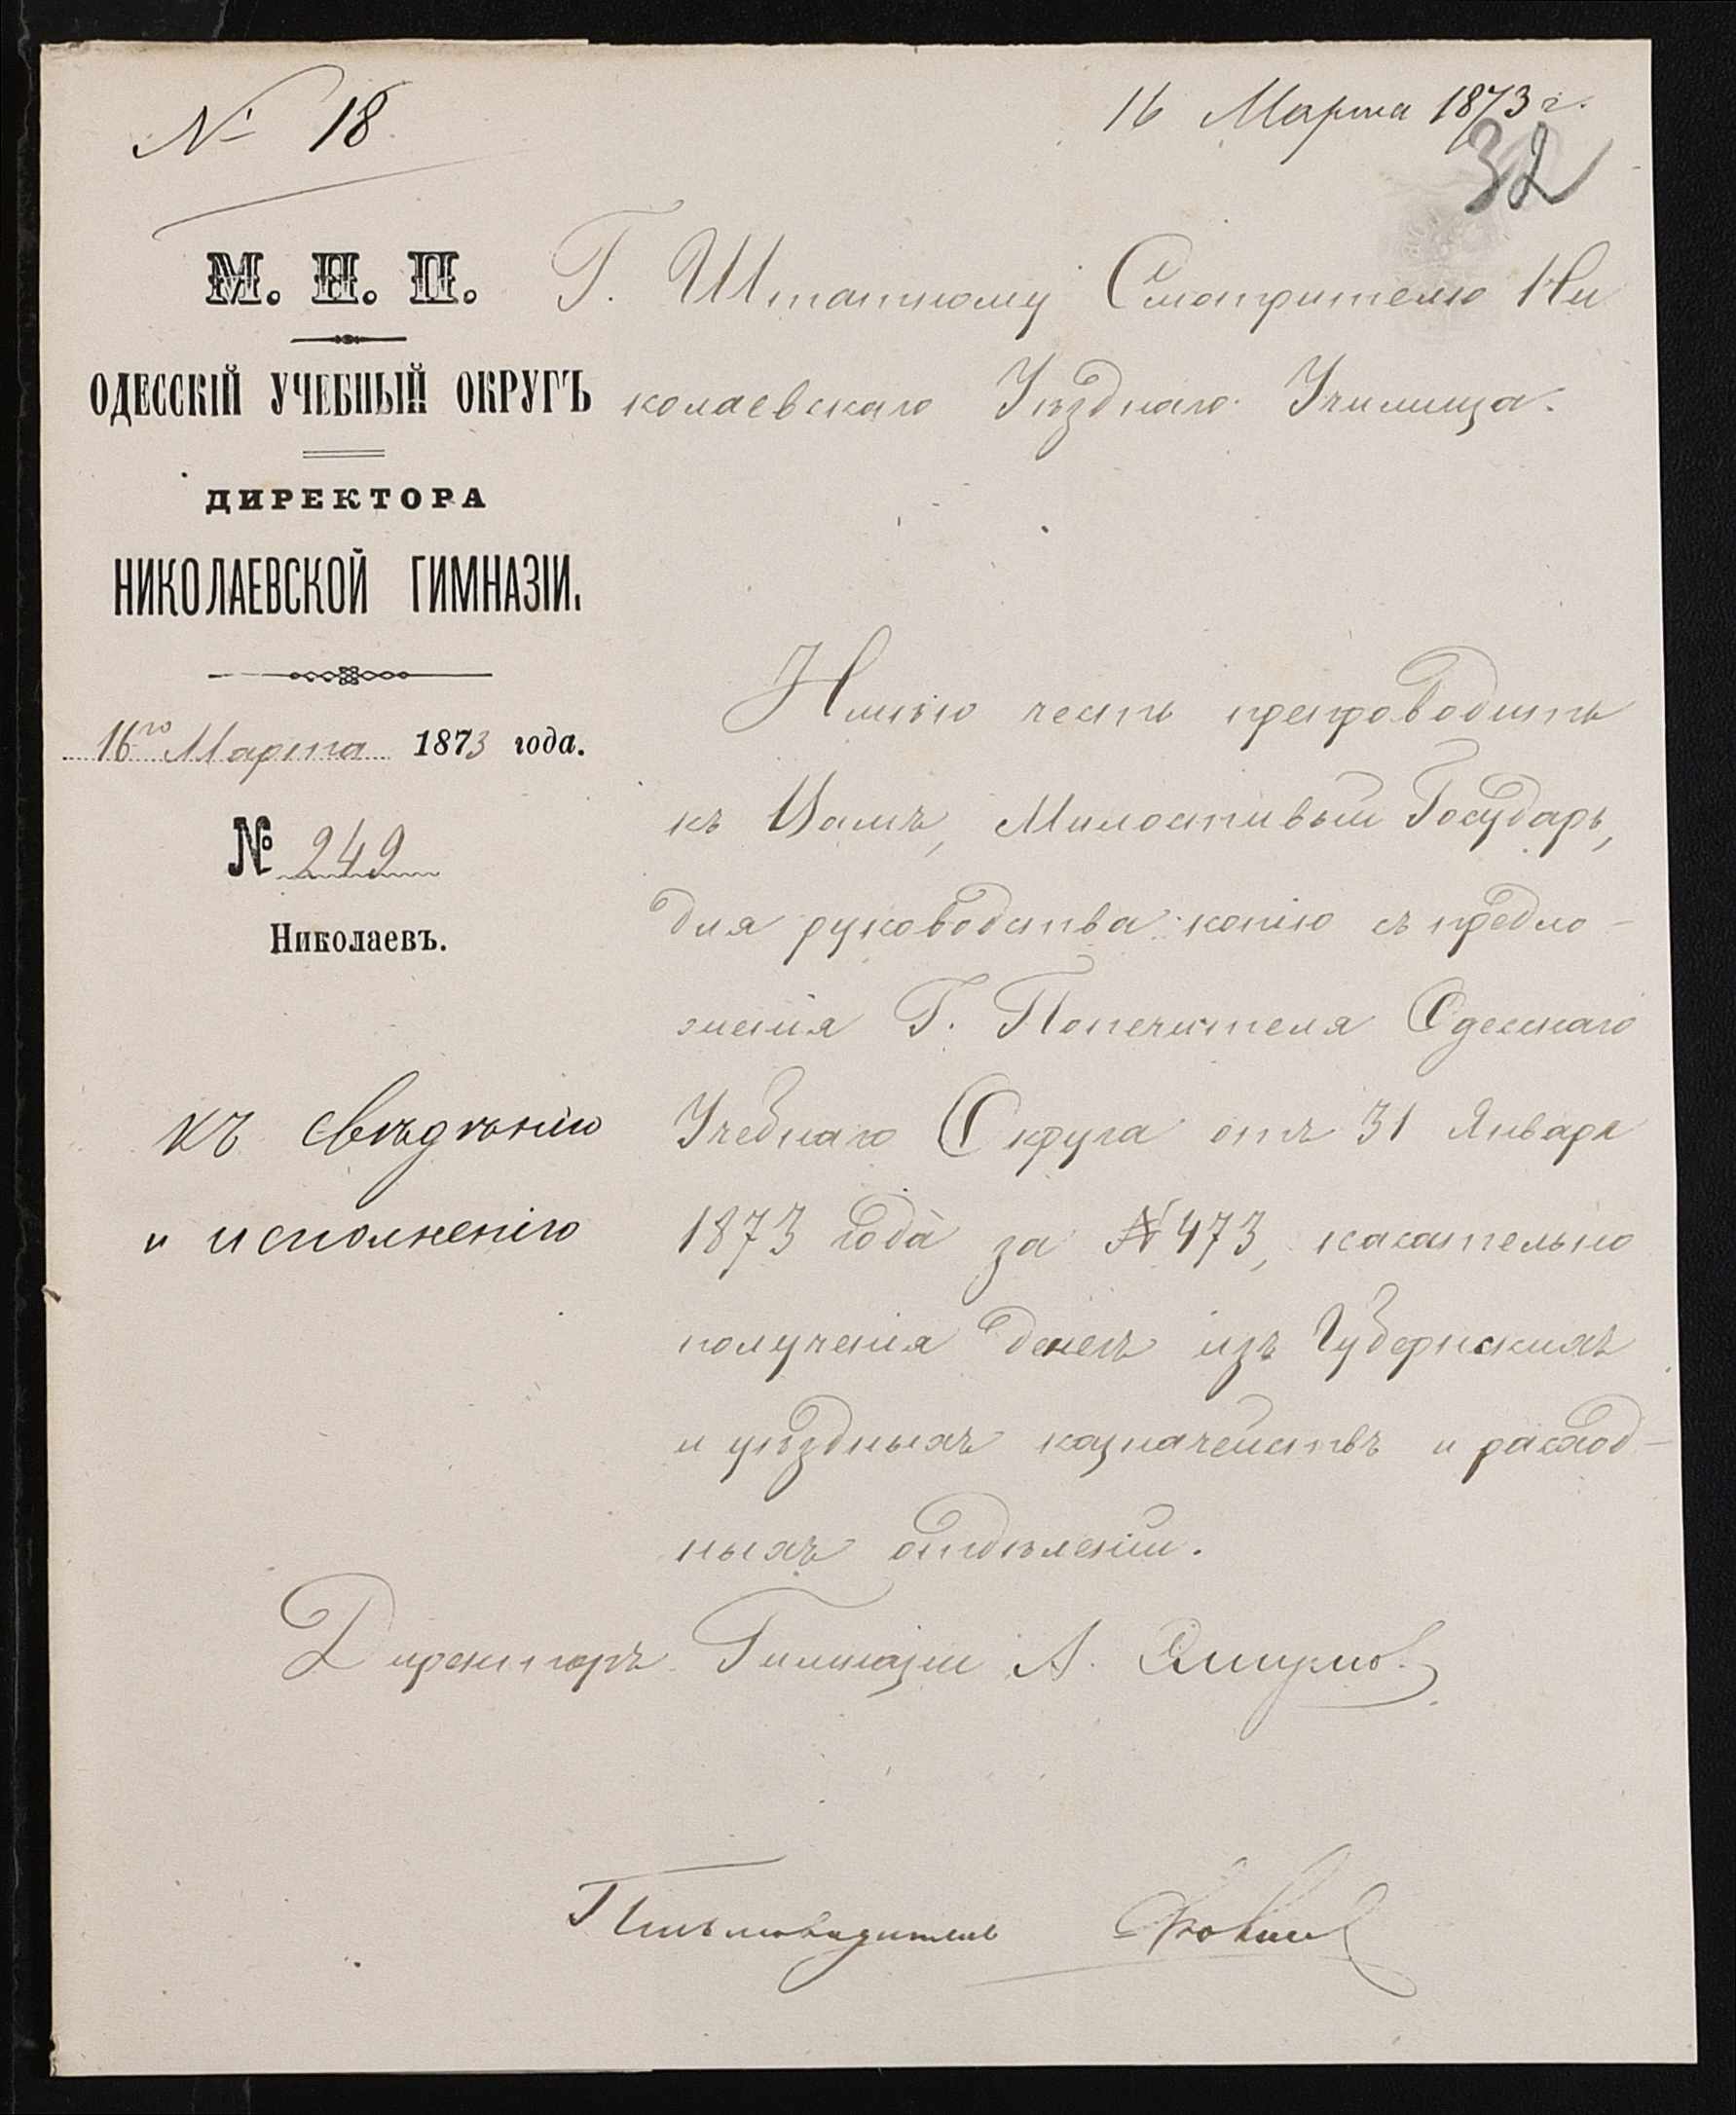 № 18
16 Марта 1873 г.
32
М. Н. П.
ОДЕССКІЙ УЧЕБНЫЙ ОКРУГЪ
ДИРЕКТОРА
НИКОЛАЕВСКОЙ ГИМНАЗІИ.
16го Марта 1873 года.
№ 242
Николаевъ.
къ свѣдѣнію
и исполненію
Г. Штатному Смотрителю Ни
колаевскаго Уѣзднаго Училища.
Имѣю честь препроводить
къ Вамъ, Милостивый Государь,
для руководства копію съ предло-
женія Г. Попечителя Одесскаго
Учебнаго Округа отъ 31 Января
1873 года за № 473, касательно
полученія денегъ изъ Губернскихъ
и уѣздныхъ казначействъ и расход-
ныхъ отдѣленій.
Директоръ Гимназіи А.
Письмоводитель